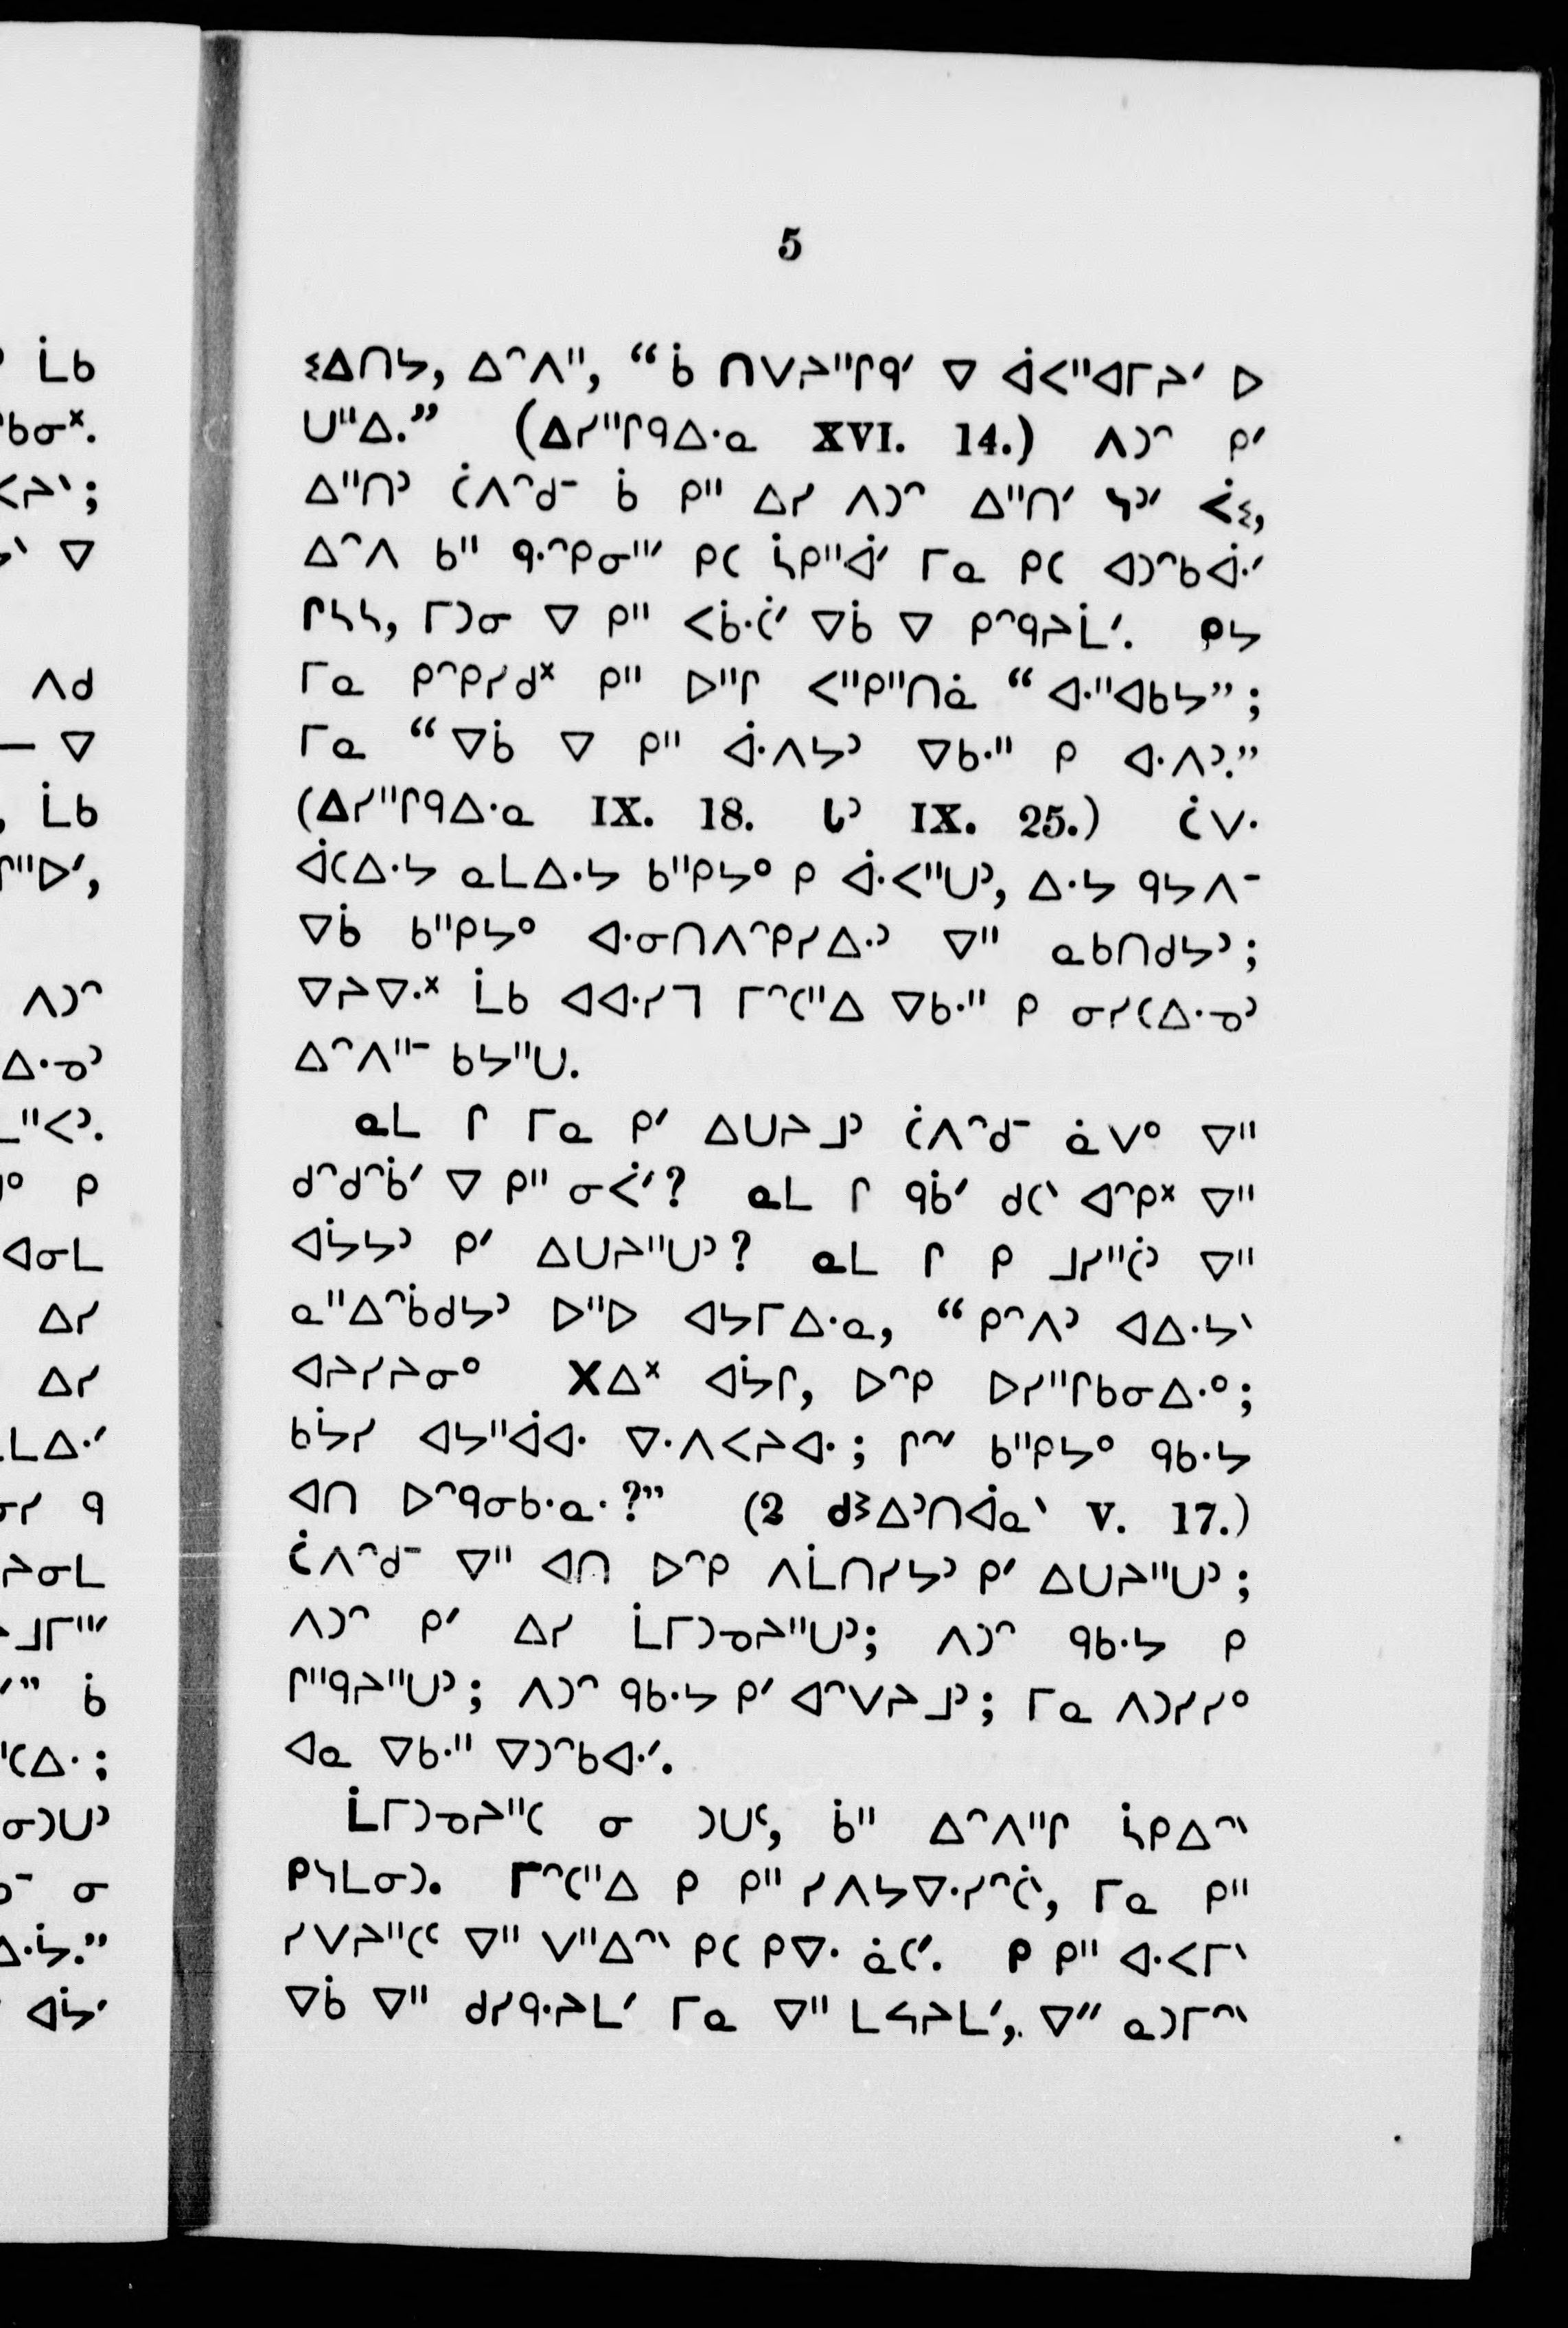 5
ᓬᐃᑎᔭ, ᐃᐢᐱᐦ, “ᑳ ᑎᐯᔨᐦᒋᑫᐟ ᐁ ᐋᐸᐦᐊᒥᔨᐟ ᐅ
ᑌᐦᐃ.” (ᐃᓯᐦᒋᑫᐃᐧᓇ XVI. 14.) ᐱᑐᐢ ᑭᐟ
ᐃᐦᑎᐣ ᑖᐱᐢᑯᐨ ᑳ ᑭᐦ ᐃᓯ ᐱᑐᐢ ᐃᐦᑎᐟ ᓴᐣᐟ ᐹᓬ,
ᐃᐢᐱ ᑲᐦ ᑫᐧᐢᑭᓂᐦᐟ ᑭᑕ ᓵᑭᐦᐋᐟ ᒥᓇ ᑭᑕ ᐊᑐᐢᑲᐋᐧᐟ
ᒋᓴᓴ, ᒥᑐᓂ ᐁ ᑭᐦ ᐸᑳᐧᑖᐟ ᐁᑳ ᐁ ᑭᐢᑫᔨᒫᐟ. ᑭᔭ
ᒥᓇ ᑭᐢᑭᓯᑯᕽ ᑭᐦ ᐅᐦᒋ ᐸᐦᑭᐦᑎᓈ “ᐊᐧᐦᐊᑲᔭ”;
ᒥᓇ “ᐁᑳ ᐁ ᑭᐦ ᐋᐧᐱᔭᐣ ᐁᑲᐧᐦ ᑭ ᐊᐧᐱᐣ.”
(ᐃᓯᐦᒋᑫᐃᐧᓇ IX. 18. ᒐᐣ IX. 25.) ᑖᐯᐧ
ᐋᑕᐃᐧᔭ ᓇᒪᐃᐧᔭ ᑲᐦᑭᔭᐤ ᑭ ᐋᐧᐸᐦᑌᐣ, ᐃᐧᔭ ᑫᔭᐱᐨ
ᐁᑳ ᑲᐦᑭᔭᐤ ᐊᐧᓂᑎᐱᐢᑭᓯᐃᐧᐣ ᐁᐦ ᓇᑲᑎᑯᔭᐣ;
ᐁᔨᐁᐧᕽ ᒫᑲ ᐊᐊᐧᓯᒣ ᒥᐢᑕᐦᐃ ᐁᑲᐧᐦ ᑭ ᓂᓯᑕᐃᐧᓀᐣ
ᐃᐢᐱᐦᐨ ᑲᔭᐦᑌ.
ᓇᒪ ᒋ ᒥᓇ ᑭᐟ ᐃᑌᔨᒧᐣ ᑖᐱᐢᑯᐨ ᓈᐯᐤ ᐁᐦ
ᑯᐢᑯᐢᑳᐟ ᐁ ᑭᐦ ᓂᐹᐟ? ᓇᒪ ᒋ ᑫᑳᐟ ᑯᑕᐠ ᐊᐢᑭᕽ ᐁᐦ
ᐊᔮᔭᐣ ᑭᐟ ᐃᑌᔨᐦᑌᐣ? ᓇᒪ ᒋ ᑭ ᒧᓯᐦᑖᐣ ᐁᐦ
ᓇᐦᐃᐢᑳᑯᔭᐣ ᐅᐦᐅ ᐊᔭᒥᐃᐧᓇ, “ᑭᐢᐱᐣ ᐊᐃᐧᔭᐠ
ᐊᔨᓯᔨᓂᐤ XᐃX ᐊᔮᒋ, ᐅᐢᑭ ᐅᓯᐦᒋᑲᓂᐃᐧᐤ;
ᑲᔮᓯ ᐊᔭᐦᐋᐊᐧ ᐁᐧᐱᐸᔨᐊᐧ; ᒋᐢᐟ ᑲᐦᑭᔭᐤ ᑫᑲᐧᔭ
ᐊᑎ ᐅᐢᑫᓂᑲᐧᓇᐧ?” (2 ᑯᕒᐃᐣᑎᐋᓇᐠ V. 17.)
ᑖᐱᐢᑯᐨ ᐁᐦ ᐊᑎ ᐅᐢᑭ ᐱᒫᑎᓯᔭᐣ ᑭᐟ ᐃᑌᔨᐦᑌᐣ;
ᐱᑐᐢ ᑭᐟ ᐃᓯ ᒫᒥᑐᓀᔨᐦᑌᐣ; ᐱᑐᐢ ᑫᑲᐧᔭ ᑭ
ᒋᐦᑫᔨᐦᑌᐣ; ᐱᑐᐢ ᑫᑲᐧᔭ ᑭᐟ ᐊᐢᐯᔨᒧᐣ; ᒥᓇ ᐱᑐᓯᓯᐤ
ᐊᓇ ᐁᑲᐧᐦ ᐁᑐᐢᑲᐊᐧᐟ.
ᒫᒥᑐᓀᔨᐦᑕ ᓂ ᑐᑌᒼ, ᑳᐦ ᐃᐢᐱᐦᒋ ᓵᑭᐃᐢᐠ
ᑭᓴᒪᓂᑐ. ᒥᐢᑕᐦᐃ ᑭ ᑭᐦ ᓯᐱᔭᐁᐧᓯᐢᑖᐠ, ᒥᓇ ᑭᐦ
ᓯᐯᔨᐦᑕᒼ ᐁᐦ ᐯᐦᐃᐢᐠ ᑭᑕ ᑭᐁᐧ ᓈᑕᐟ. ᑭ ᑭᐦ ᐊᐧᐸᒥᐠ
ᐁᑳ ᐁᐦ ᑯᓯᑫᐧᔨᒪᐟ ᒥᓇ ᐁᐦ ᒪᓴᔨᒪᐟ, ᐁᐦ ᓇᑐᒥᐢᐠ